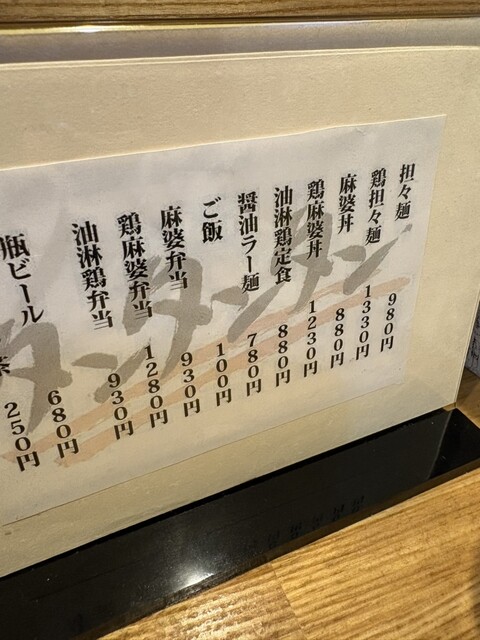 担々麺 980円
鶏担々麺 1330円
麻婆丼 880円
鶏麻婆丼 1230円
油淋鶏定食 880円
醤油ラー麺 780円
ご飯 100円
麻婆弁当 930円
鶏麻婆弁当 1280円
油淋鶏弁当 930円
瓶ビール 680円
茶 250円
タンタンタン